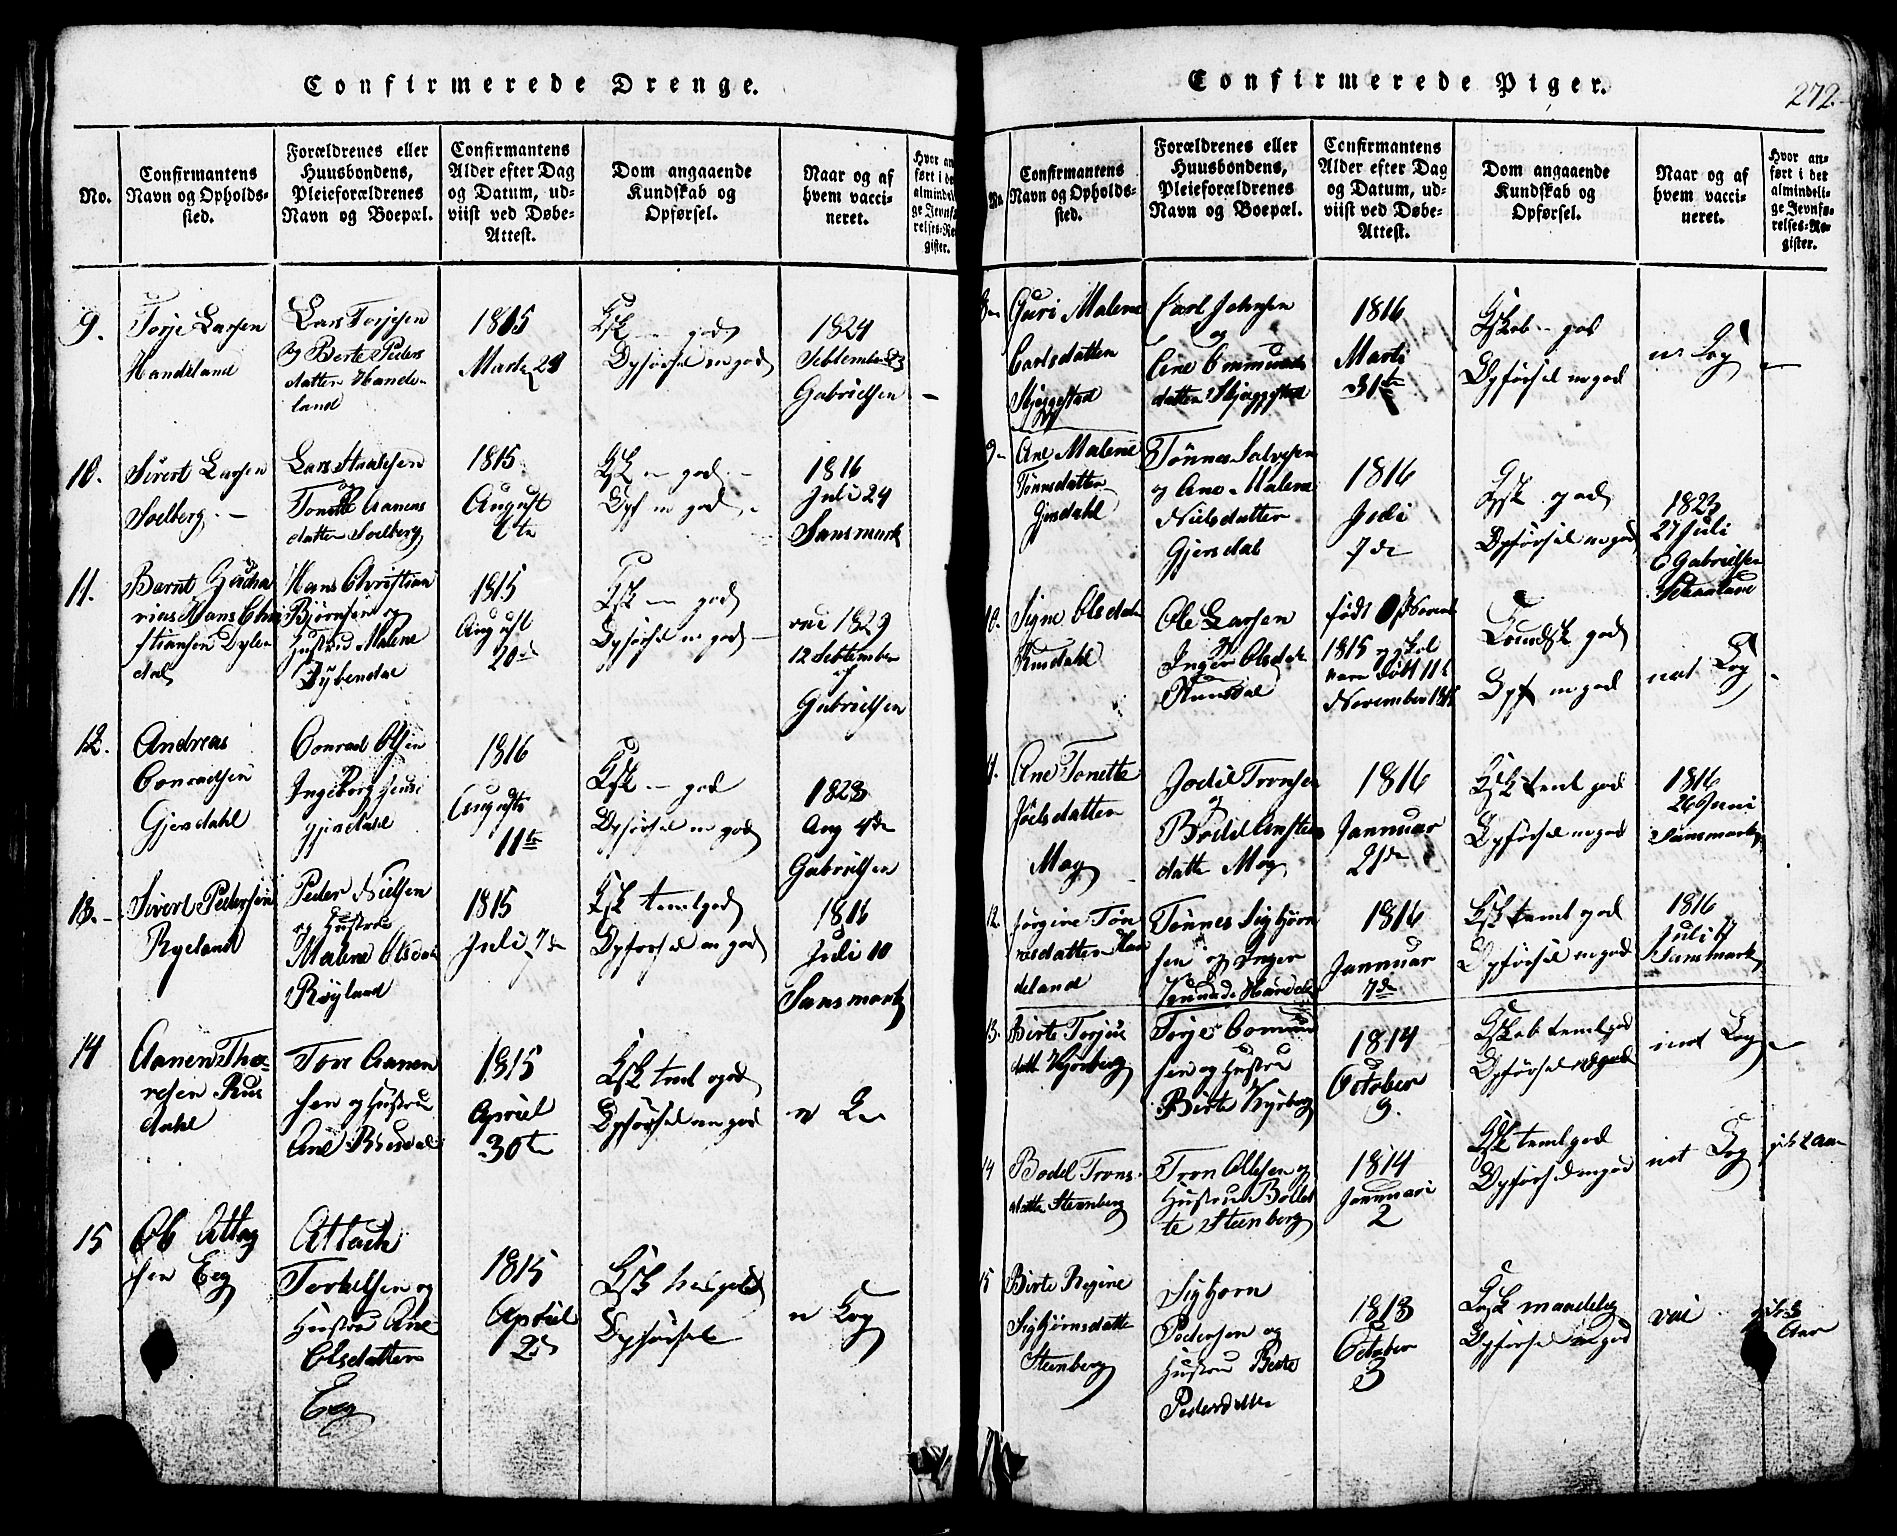 Confirmerede Drenge.
No.
Confirmantens
Navn og Opholds-
sted.
Forældrenes eller
Huusbondens,
Pleieforældrenes
Navn og Boepæl.
Confirmantens
Alder efter Dag
og Datum, ud-
viist ved Døbe-
Attest.
Dom angaaende
Kundskab og
Opførsel.
Naar og af
hvem vacci-
neret.
Hvor an-
ført i det
almindeli-
ge Jevnfø-
relses-Re-
gister.
9.
Torje Larsen
Handeland
Lars Torjesen
og Berte Peders
datter Hande-
land
1815
1824
September
Gabrielsen
10.
Sivert Larsen
Solberg
Lars
datter Solberg
1815
August
Ksk god
1816
Juli 24
Sansmark
11.
Bernt Zacha
rias Hans Chri
stiansen Dyben
dal
Hans Christian
Bjørnsen og
Hustru Malene
Dybendal
1815
August
20de
Ksk god
Opførsel m god
vac 1829
12 September
af
Gabrielsen
12.
Andreas
Conradsen
Gjersdahl
Conrad Olsen
Ingeborg
Gjersdahl
1816
August
11te
Ksk god
Opførsel m god
1823
Aug 4de
Gabrielsen
13.
Sivert Pedersen
Røyland
Peder Nielsen
og Hustrue
Malene Olsdat
Røyland
1815
Juli 7de
Ksk temlgod
Opførsel m god
1816
Juli 10
Sansmark
14
Aanen Tho-
resen Ruus
dahl
Tore Aanen
sen og Hustru
Ane Ruusdal
1815
April
30te
Ksk teml god
Opførsel m god
15
Ole Attag
sen Eeg
Attack
Torkelsen og
Hustru Ane
Olsdatter
Eeg
1815
April
2d
Ksk
Opførsel
n Kog
Confirmerede Piger.
272.
No.
Confirmantens
Navn og Opholds-
sted.
Forældrenes eller
Huusbondens,
Pleieforældrenes
Navn og Boepæl.
Confirmantens
Alder efter Dag
og Datum, ud-
viist ved Døbe-
Attest.
Dom angaaende
Kundskab og
Opførsel.
Naar og af
hvem vacci-
neret.
Hvor an-
ført i det
almindeli-
ge Jevnfø-
relses-Re-
gister.
8
Guri Malene
Carlsdatter
Skjeggestad
Carl Johnsen
og
Ommunds
datter Skjeggestad
1816
Marti
31te
Kskab god
Opførsel m god
9
Ane Malene
Tønnesdatter
Gjersdahl
Tønnes Salvesen
og Ane Malene
Nielsdatter
Gjersdal
1816
7de
Ksk god
Opførsel m god
1823
27 Juli
Gabrielsen
10.
Signe Olsdatter
Ruusdahl
Ole Larsen
og
Inger Olsdat
Ruusdal
født
1815 og skal
være døbt 11te
November 1815
Kundsk god
Opf m god
nat Kog
11.
Ane Tonette
Joelsdatter
Moy
Joel Tronsen
og
Bodil
datter Moy
1816
Januar
21de
Ksk teml god
Opførsel m god
1816
26 Juni
Sansmark
12.
Jørgine Tøn
nesdatter Han
deland
Tønnes Sigbjørn
sen og Inger
1816
Januar
7de
Ksk teml god
Opførsel m god
1816
Juli 17
Sansmark
13.
Birte Torjus
datt Kyrberg
Torjes Gomun
sen og Hustru
Birte Kyrberg
1814
October
9.
Kskab temlgod
Opførsel m god
nat Kog
14
Bodel Trons-
datter Steenberg
Tron Ollesen og
Hustru
te Steenberg
1814
Januari
2
Ksk temlgod
Opførsel m god
nat Kog
15
Birte Regine
Sigbjørnsdatter
Steenberg
Sigbjørn
Pedersen og
Hustru Berte
Pedersdatter
1813
October
3
Ksk maadelig
Opførsel m god
vac
Aar